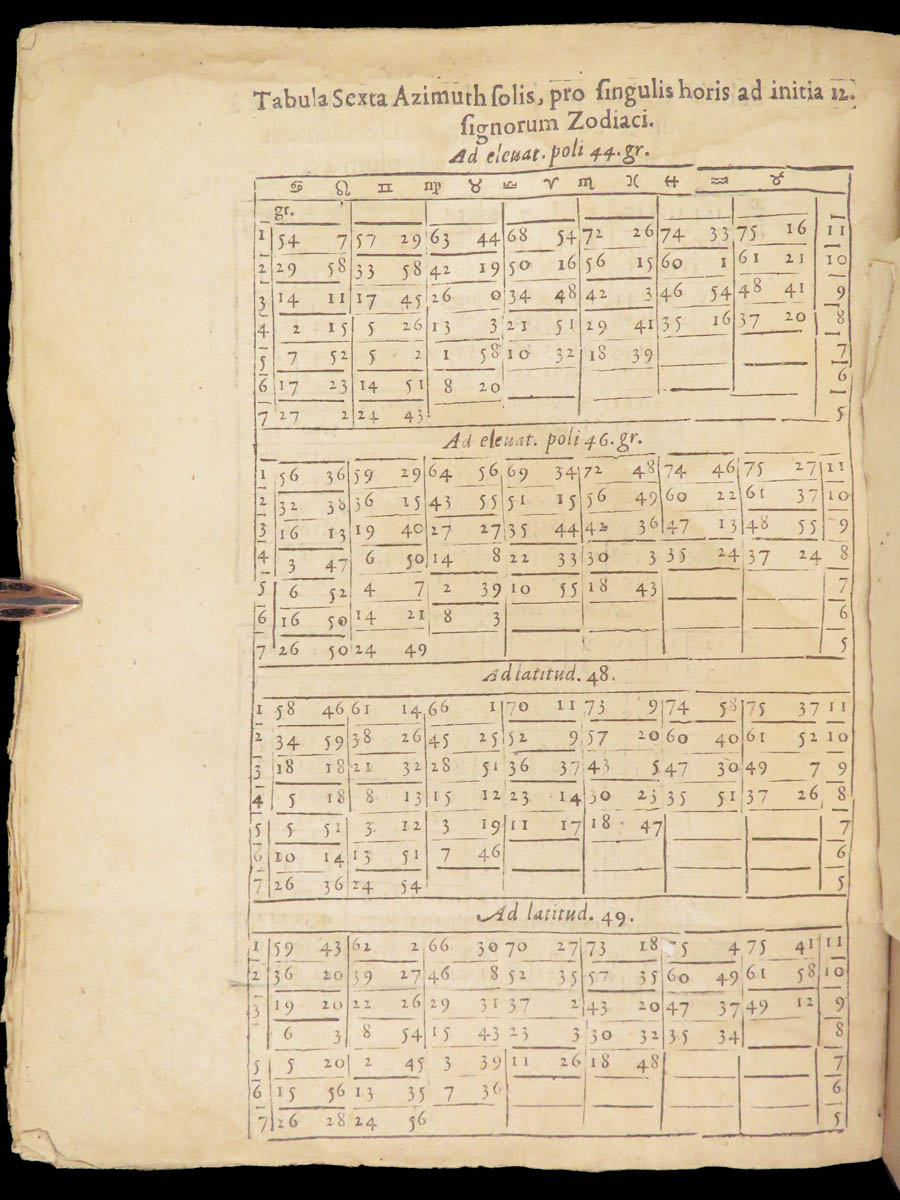 Tabula Sexta Azimuth solis, pro singulis horis ad initia 12.
signorum Zodiaci.
Ad eleuat. poli 44. gr.
♋ ♌ ♊ ♍ ♉ ♎ ♈ ♏ ♓ ♐ ♒ ♑
gr. '
1 54 7 57 29 63 44 68 54 72 26 74 33 75 16 11
2 29 58 33 58 42 19 50 16 56 15 60 1 61 21 10
3 14 11 17 45 26 0 34 48 42 3 46 54 48 41 9
4 2 15 5 26 13 3 21 51 29 41 35 16 37 20 8
5 7 52 5 2 1 58 10 32 18 39 7
6 17 23 14 51 8 20 6
7 27 2 24 43 5
Ad eleuat. poli 46. gr.
1 56 36 59 29 64 56 69 34 72 48 74 46 75 27 11
2 32 38 36 15 43 55 51 15 56 49 60 22 61 37 10
3 16 13 19 40 27 27 35 44 42 36 47 13 48 55 9
4 3 47 6 50 14 8 22 33 30 3 35 24 37 24 8
5 6 52 4 7 2 39 10 55 18 43 7
6 16 50 14 21 8 3 6
7 26 50 24 49 5
Ad latitud. 48.
1 58 46 61 14 66 1 70 11 73 9 74 58 75 37 11
2 34 59 38 26 45 25 52 9 57 20 60 40 61 52 10
3 18 18 21 32 28 51 36 37 43 5 47 30 49 7 9
4 5 18 8 13 15 12 23 14 30 23 35 51 37 26 8
5 5 51 3 12 3 19 11 17 18 47 7
6 10 14 13 51 7 46 6
7 26 36 24 54 5
Ad latitud. 49.
1 59 43 62 2 66 30 70 27 73 18 5 4 75 41 11
2 36 20 39 27 46 8 52 35 57 35 60 49 61 58 10
3 19 20 22 26 29 31 37 2 43 20 47 37 49 12 9
6 3 8 54 15 43 23 3 30 32 35 34 8
5 5 20 2 45 3 39 11 26 18 48 7
6 15 56 13 35 7 36 6
7 26 28 24 56 5